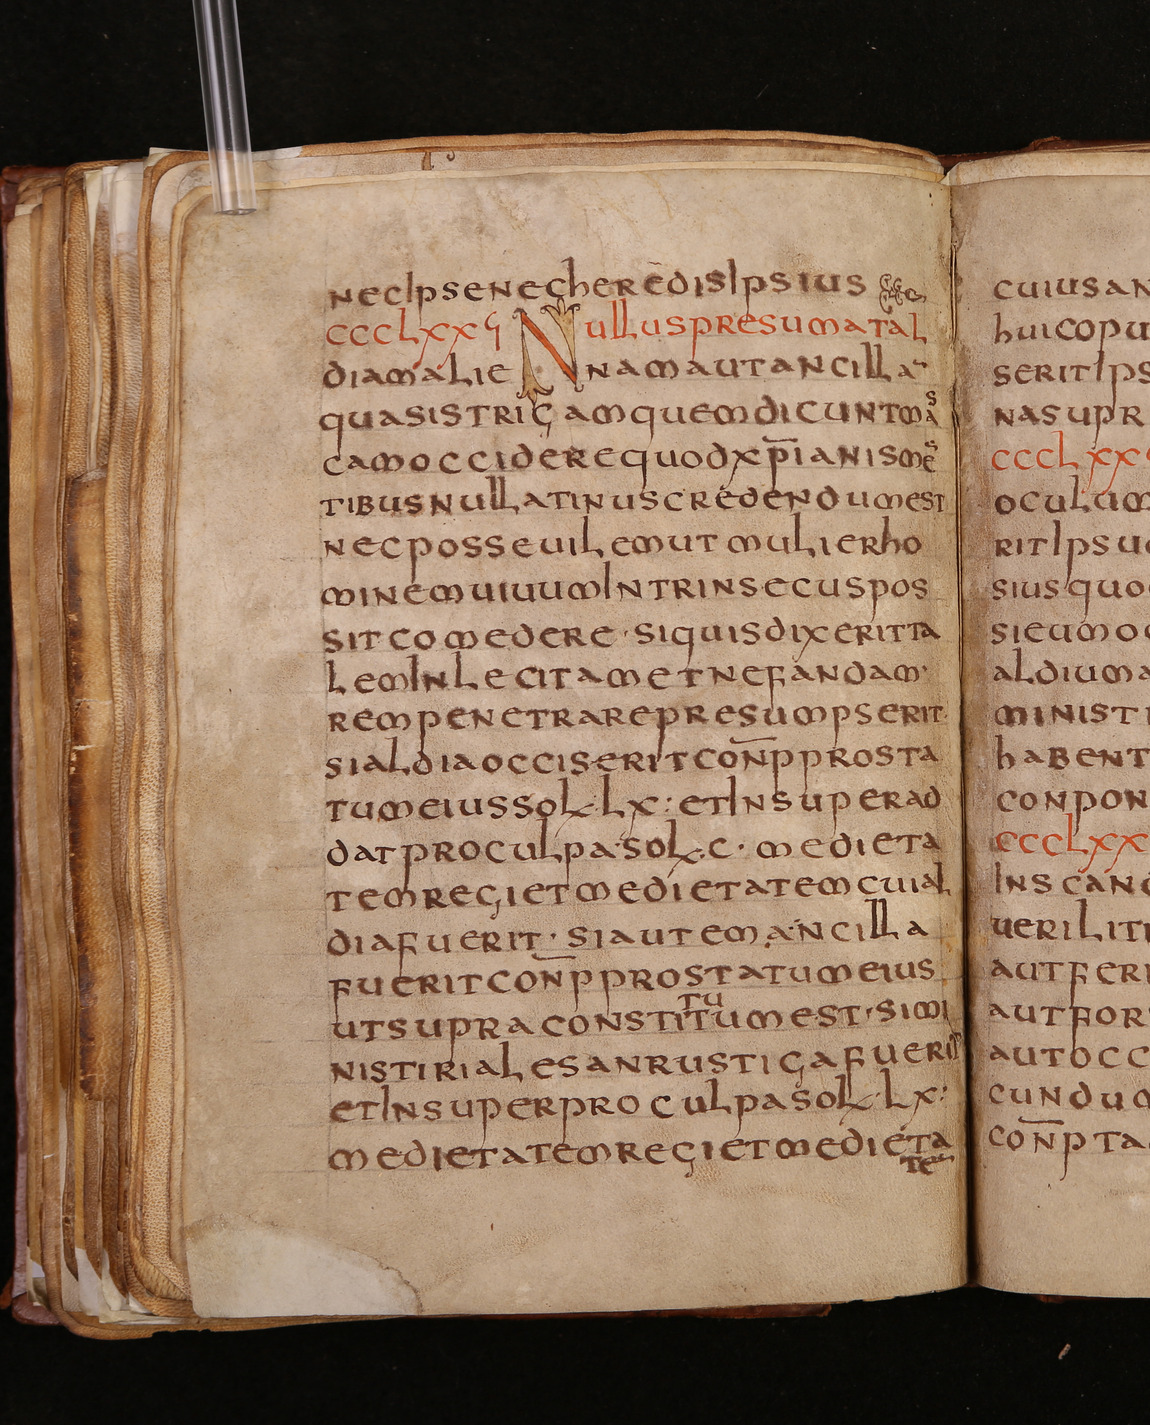 necIpsenecheredisIpsius
ccclxxϛ Nulluspresumatal
diamalienamautancilla
quasistrigamquemdicuntmas
camoccidere quodxp̅ianisme
tibusnullatinuscredendumest
necpossevilemutmulierho
minemuiuumIntrinsecuspos
sitcomedere · siquisdixeritta
lemInlecitametnefandam
rempenetrarepresumpserit
sialdiaocciseritcon̅pprosta
tumeiussol·lx: etInsuperad
datproculpa·sol·c· medieta
temregietmedietatemcuial
diafuerit · siautemancilla
fueritcon̅pprostatumeius
utsupraconstitutumest · simi
nistirialesanrusticafuerit
etInsuperproculpasol·lx:
medietatemregietmedieta
tem
cuiusan
huicopu
seritIps
nasupr
ccclxx
oculum
ritIpsu
siusquo
sieumo
aldiuma
minist
habent
conpon
ccclxx
Inscan
uerilit
autferi
autfor
autocc
cundu
con̅pta